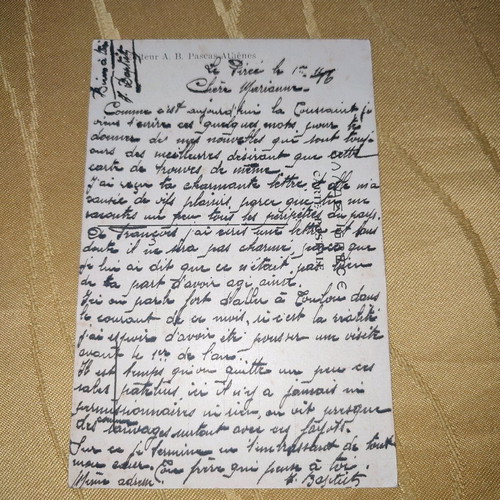 Bien à toi
J. Baptist
teur A. B. Pascas Athènes
Le Pirée le 1er
Chère Marianne
Comme c'est aujourd'hui la Toussaint je
viens t'écrire ces quelques mots pour te
donner de mes nouvelles qui sont touj-
ours des meilleures désirant que cette
carte te trouves de même.
J'ai reçu ta charmante lettre et elle m'a
causée de vifs plaisirs, parce que tu me
racontes un peu tous les péripéties du pays.
De François j'ai écris une lettre et sans
doute il ne sera pas charmé, parce que
je lui ai dit que ce n'était pas bien
de ta part d'avoir agi ainsi.
J'ai ou parle fort d'aller à Toulon dans
le courant de ce mois, si c'est la réalité
j'ai espoir d'avoir été pousser une visite
avant le 1er de l'an.
Il est temps qu'on quitte un peu ces
sales il n'y a jamais ni
permissionnaires ni rien, on vit presque
comme
des sauvages surtout avec ces
Sur ce je termine en t'embrassant de tout
mon cœur. Ton frère qui pense à toi.
Même adresse. J. Baptist
CARTE POSTALE